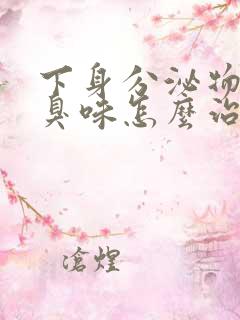 下身分泌物
臭味怎麼治
滄煌